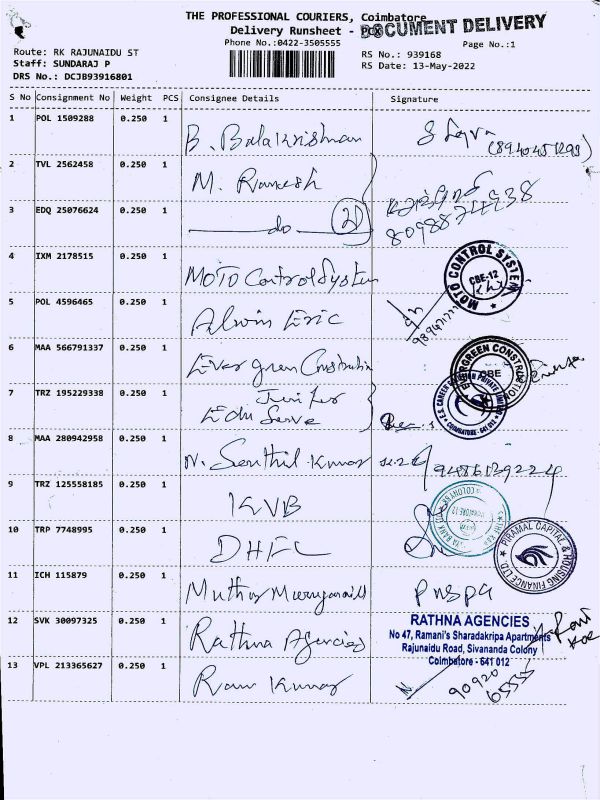 THE PROFESSIONAL COURIERS, Coimbatore
Delivery Runsheet - DOCUMENT DELIVERY
Phone No.:0422-3505555
Page No.:1
Route: RK RAJUNAIDU ST
RS No.: 939168
Staff: SUNDARAJ P
RS Date: 13-May-2022
DRS No.: DCJB93916801
S No Consignment No Weight PCS Consignee Details Signature
1 POL 1509288 0.250 1 B. Balakrishnan
2 TVL 2562458 0.250 1 M. Ramesh
3 EDQ 25076624 0.250 1 do
4 IXM 2178515 0.250 1 MOTO Control System MOTO CONTROL SYSTEM CBE-12
5 POL 4596465 0.250 1 Alwin Eric
6 MAA 566791337 0.250 1 Ever green Construction EVERGREEN CONSTRUCTION CBE
7 TRZ 195229338 0.250 1 Edu Serve
8 MAA 280942958 0.250 1 N. Senthil Kumar
9 TRZ 125558185 0.250 1 KVB
10 TRP 7748995 0.250 1 DHFL PIRAMAL CAPITAL & HOUSING FINANCE LTD
11 ICH 115879 0.250 1
12 SVK 30097325 0.250 1 Rathna Agencies RATHNA AGENCIES
No 47, Ramani's Sharadakripa Apartments
Rajunaidu Road, Sivananda Colony
Coimbatore - 641 012
13 VPL 213365627 0.250 1 Ram Kumar 90920
65555